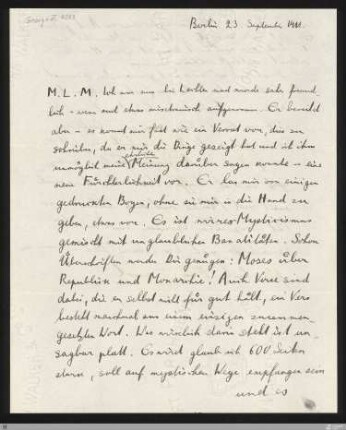 Berlin 23 September 1911.
M. L. M. Ich war nun bei Lechter und wurde sehr freund-
lich – wenn auch etwas misstrauisch aufgenommen. Er
aber – es kommt mir fast wie ein Verrat vor, das zu
schreiben, da er mir die Dinge gezeigt hat und ich ihm
unmöglich meine schlechte Meinung darüber sagen konnte – eine
neue Fürchterlichkeit vor. Er las mir von einigen
gedruckten Bogen, ohne sie mir in die Hand zu
geben, etwas vor. Es ist wirres Mysticismus
gemischt mit unglaublichen Banalitäten. Schon
Überschriften werden Dir genügen: Moses über
Republik und Monarchie! Auch Verse sind
dabei, die er selbst nicht für gut hält, ein Vers
besteht manchmal aus einem einzigen zusammen-
gesetzten Wort. Was wirklich darin steht ist un-
sagbar platt. Es wird glaub ich 600 Seiten
stark, soll auf mystischem Wege empfangen sein
und es